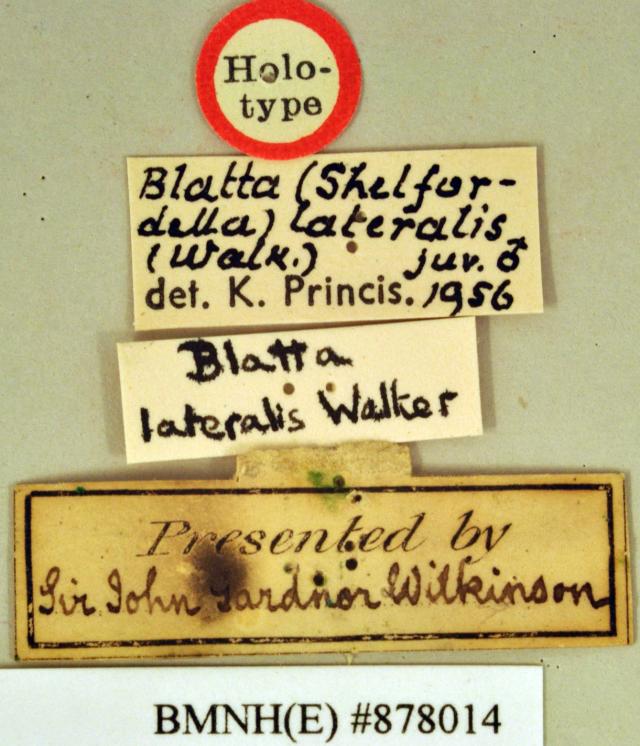 Holo-
type
Blatta (Shelfor-
della) lateralis
(Walk.) juv. ♂
det. K. Princis. 1956
Blatta
lateralis Walker
Presented by
Sir John Gardnor Wilkinson
BMNH(E) #878014